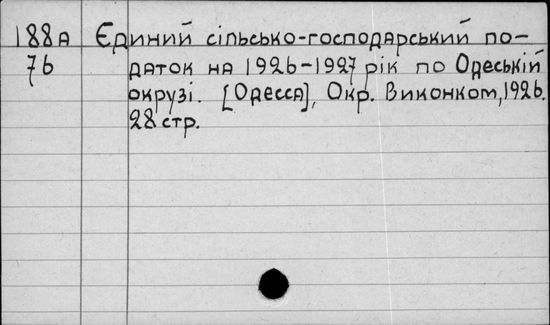 188А Єдиний сільсько-господарський по-
76 даток на 1926-1927 рік по Одеській
окрузі. [Одесса], Окр. Виконком, 1926.
28 стр.